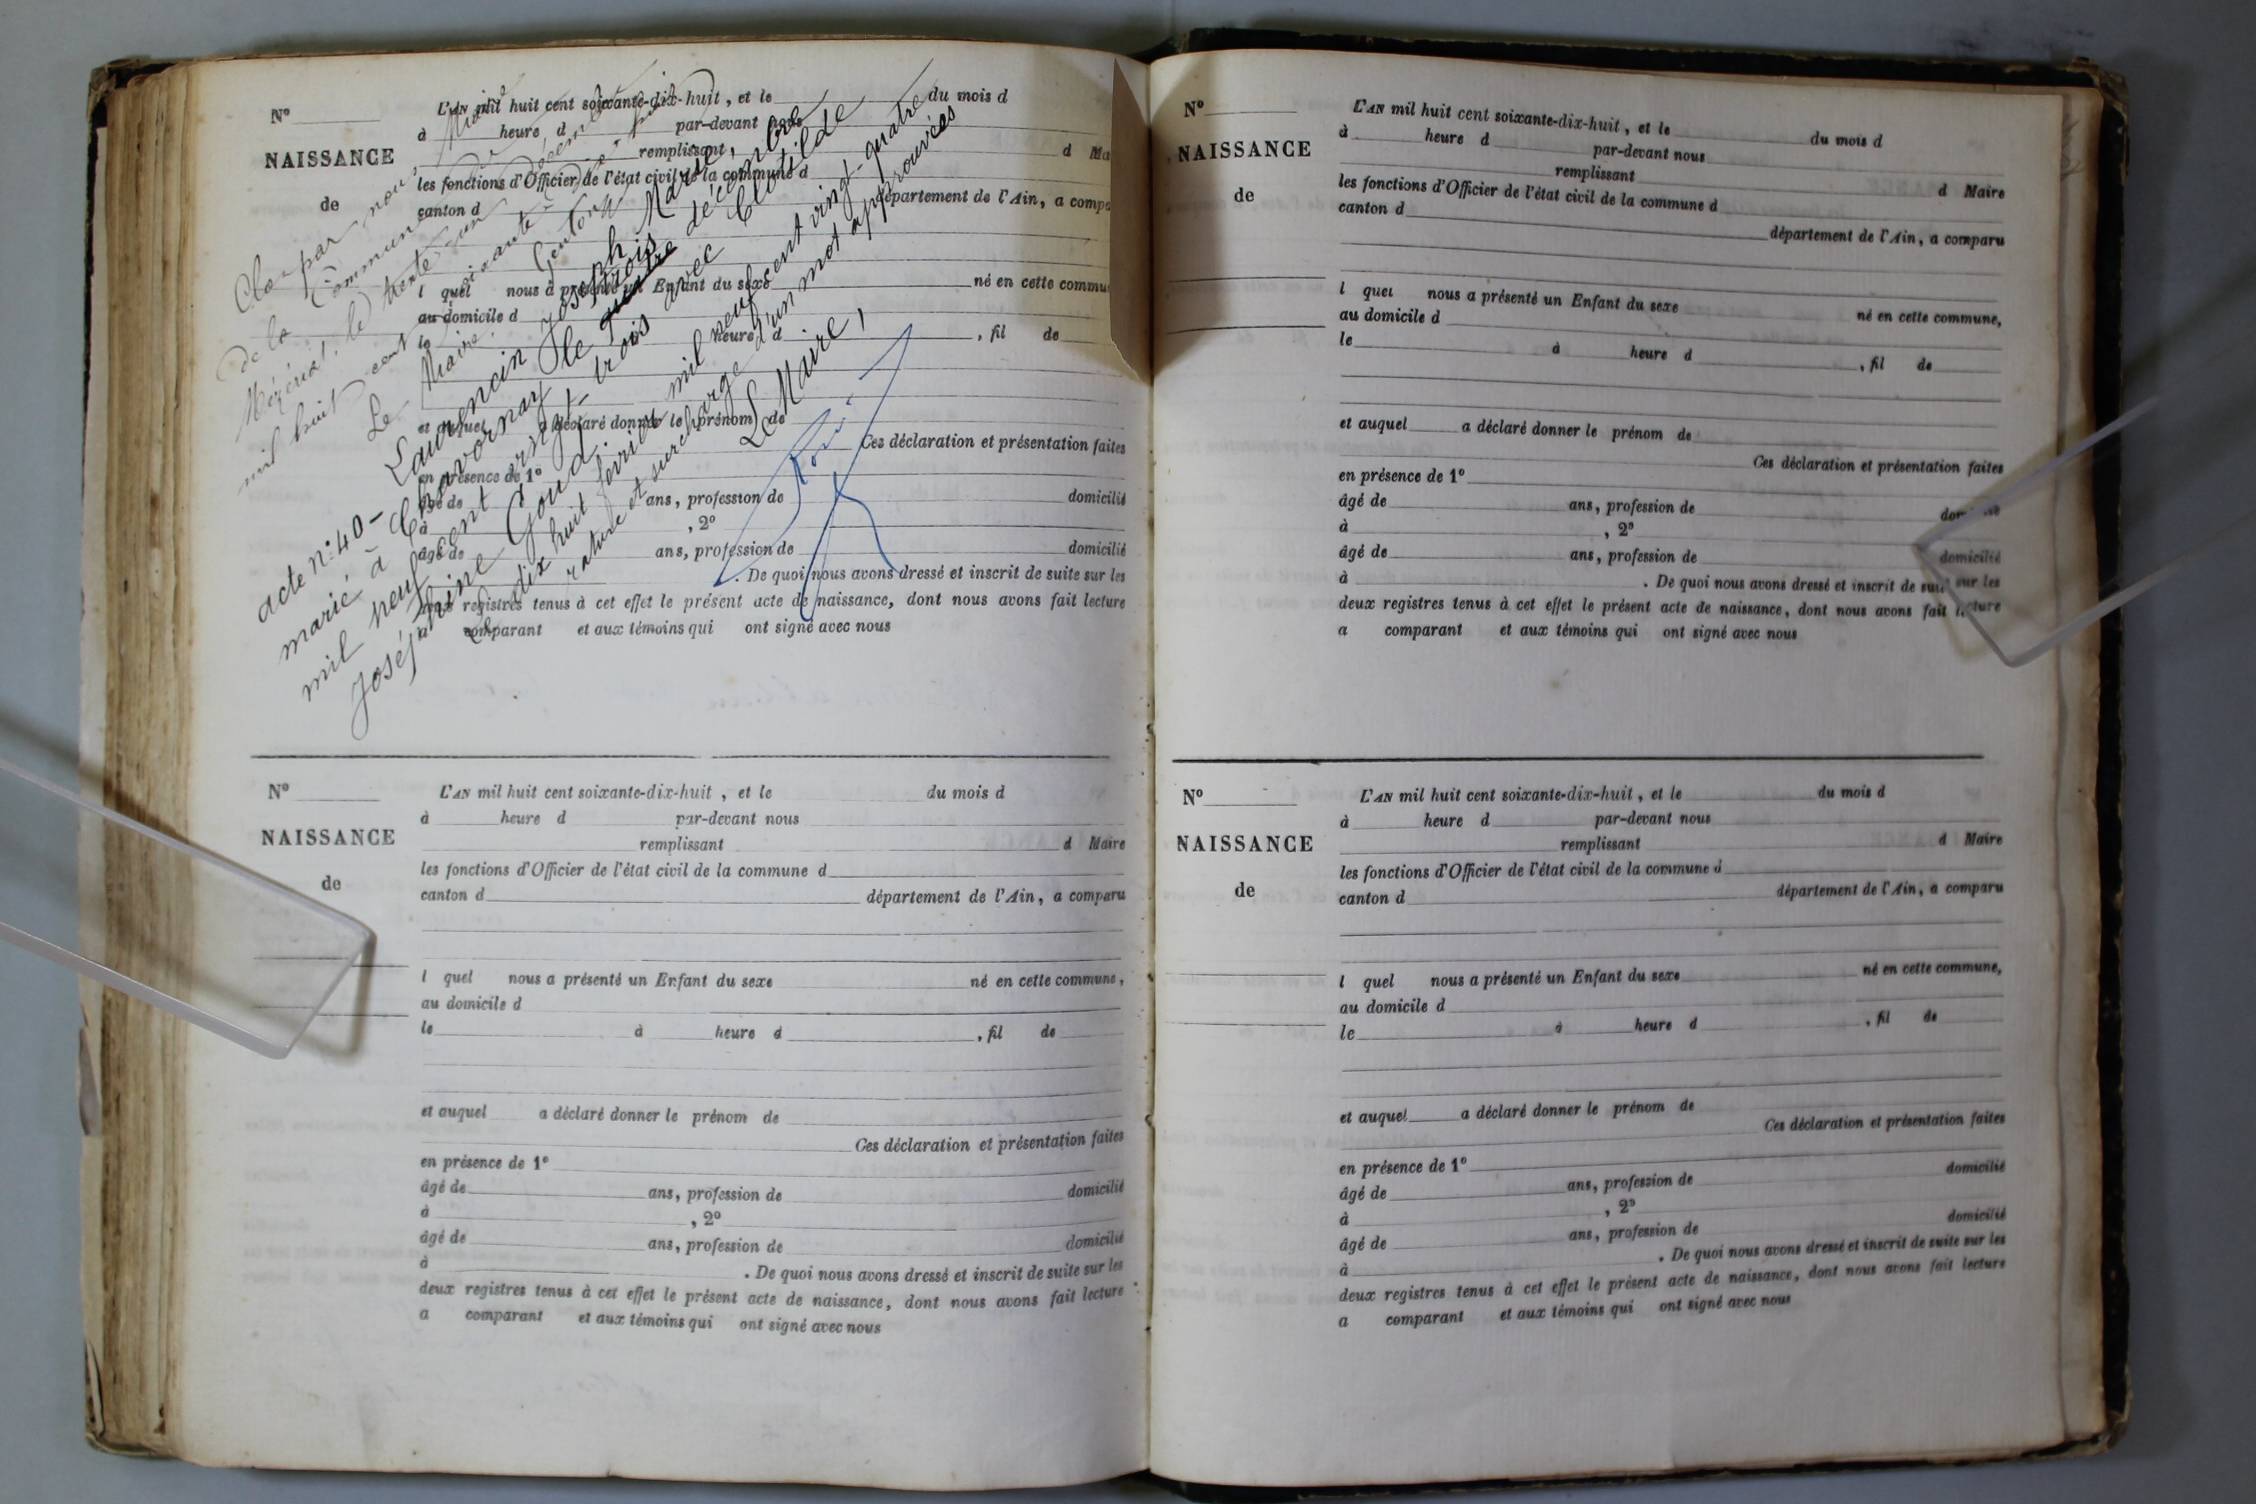 N°
NAISSANCE
de
L'AN mil huit cent soixante-dix-huit, et le du mois d
à heure d par-devant nous
remplissant d Ma
les fonctions d'Officier de l'état civil de la commune d
canton d département de l'Ain, a compa
l quel nous a présenté un Enfant du sexe né en cette commu
au domicile d
le heure d , fil de
et auquel a déclaré donner le prénom de
Ces déclaration et présentation faites
en présence de 1°
âgé de ans, profession de domicilié
à , 2°
âgé de ans, profession de domicilié
. De quoi nous avons dressé et inscrit de suite sur les
registres tenus à cet effet le présent acte de naissance, dont nous avons fait lecture
a comparant et aux témoins qui ont signé avec nous
Clos par nous, Maire
de la Commune de
Mézériat, le trente-un décembre
mil huit cent soixante-dix-huit
Le Maire
acte n° 40 - Laurencin Joseph Marie,
marié à Chavornay le trois décembre
mil neuf cent vingt-trois avec Clotilde
Joséphine Goudi
Le dix huit février mil neuf cent vingt-quatre
rature et surcharge d'un mot approuvées
Le Maire,
N°
NAISSANCE
de
L'AN mil huit cent soixante-dix-huit, et le du mois d
à heure d par-devant nous
remplissant d Maire
les fonctions d'Officier de l'état civil de la commune d
canton d département de l'Ain, a comparu
l quel nous a présenté un Enfant du sexe né en cette commune,
au domicile d
le à heure d , fil de
et auquel a déclaré donner le prénom de
Ces déclaration et présentation faites
en présence de 1°
âgé de ans, profession de domicilié
à , 2°
âgé de ans, profession de domicilié
à . De quoi nous avons dressé et inscrit de suite sur les
deux registres tenus à cet effet le présent acte de naissance, dont nous avons fait lecture
a comparant et aux témoins qui ont signé avec nous
N°
NAISSANCE
de
L'AN mil huit cent soixante-dix-huit, et le du mois d
à heure d par-devant nous
remplissant d Maire
les fonctions d'Officier de l'état civil de la commune d
canton d département de l'Ain, a comparu
l quel nous a présenté un Enfant du sexe né en cette commune,
au domicile d
le à heure d , fil de
et auquel a déclaré donner le prénom de
Ces déclaration et présentation faites
en présence de 1°
âgé de ans, profession de domicilié
à , 2°
âgé de ans, profession de domicilié
à . De quoi nous avons dressé et inscrit de suite sur les
deux registres tenus à cet effet le présent acte de naissance, dont nous avons fait lecture
a comparant et aux témoins qui ont signé avec nous
N°
NAISSANCE
de
L'AN mil huit cent soixante-dix-huit, et le du mois d
à heure d par-devant nous
remplissant d Maire
les fonctions d'Officier de l'état civil de la commune d
canton d département de l'Ain, a comparu
l quel nous a présenté un Enfant du sexe né en cette commune,
au domicile d
le à heure d , fil de
et auquel a déclaré donner le prénom de
Ces déclaration et présentation faites
en présence de 1°
âgé de ans, profession de domicilié
à , 2°
âgé de ans, profession de domicilié
à . De quoi nous avons dressé et inscrit de suite sur les
deux registres tenus à cet effet le présent acte de naissance, dont nous avons fait lecture
a comparant et aux témoins qui ont signé avec nous